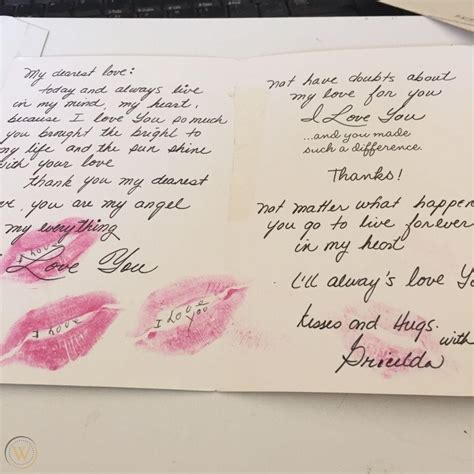 My dearest love:
today and always live
in my mind, my heart,
because I love You so much
you brought the bright to
my life and the sun shine
with your love
thank you my dearest
you are my angel
my everything
I Love You
I Love
You
I Love
I Love
You
not have doubts about
my love for you
I Love You
...and you made
such a difference.
Thanks!
not matter what happen
you go to live forever
in my heart
I'll alway's love Yo
Kisses and Hugs.
with
Gricelda
W